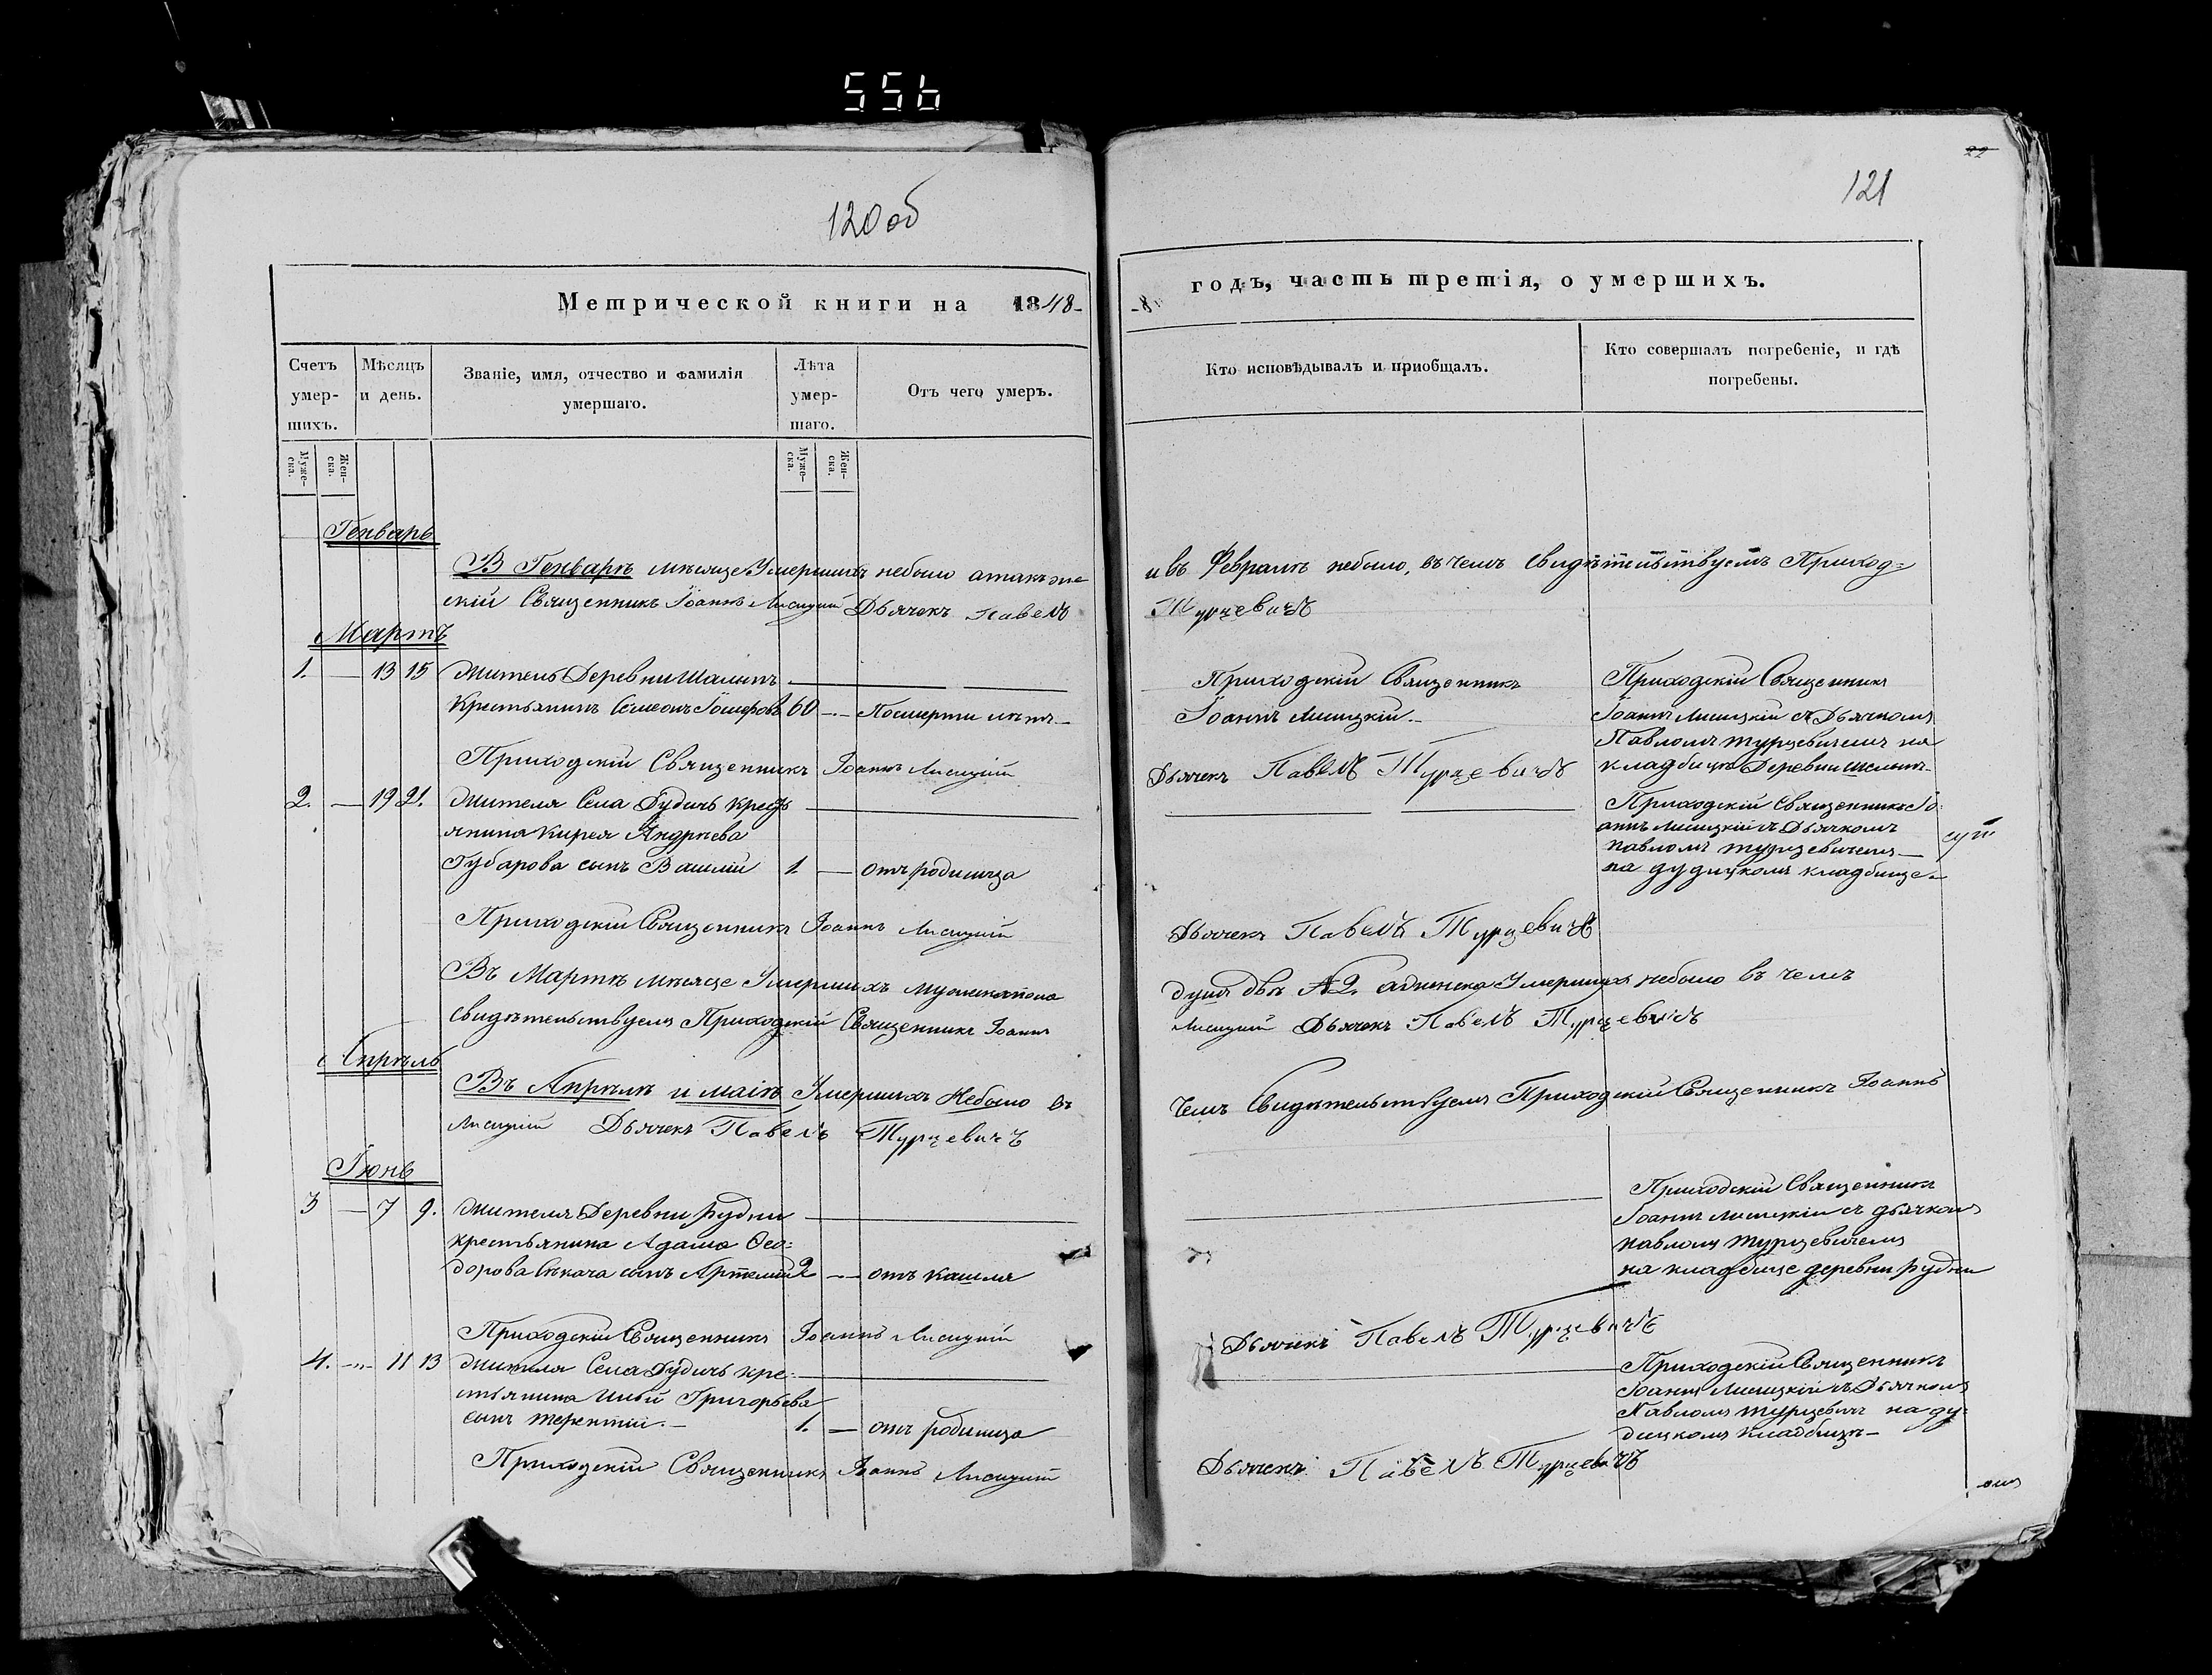 556
120 об
Метрической книги на 1848-
Счетъ умер-шихъ.
Мѣсяцъ и день.
Званіе, имя, отчество и фамилія умершаго.
Лѣта умер-шаго.
Отъ чего умеръ.
Муже-ска.
Жен-ска.
Муже-ска.
Жен-ска.
Генварь
В Генварѣ мѣсяце Умершихъ небыло атакъже
скій Священникъ Іоаннъ Лисицкій Дьячекъ Павелъ
Мартъ
1. — 13 15 Житель Деревни
Крестьянинъ Семеонъ 60 -.- Посмерти
Приходскій Священникъ Іоаннъ Лисицкій
2. — 19 21. Жителя Села Дудичъ Кресть
янина Кирея Андрѣева
Губарова сынъ Василій 1 — отъ родимца
Приходскій Священникъ Іоаннъ Лисицкій
Въ Мартѣ мѣсяце Умершихъ мужеска пола
свидѣтельствуемъ Приходскій Священникъ Іоаннъ
Апрѣль
Въ Апрѣлѣ и маіѣ Умершихъ Небыло въ
Лисицкій Дьячекъ Павелъ Турцевичъ
Іюнь
3 — 7 9. Жителя Деревни Рудни
крестьянина Адама Ѳео:
дорова сынъ Артемій 2 -- отъ кашля
Приходскій Священникъ Іоаннъ Лисицкій
4. -"- 11 13 Жителя Села Дудичъ кре:
стьянина Григорьева
сынъ терентій.- 1. — отъ родимца
Приходскій Священникъ Іоаннъ Лисицкій
22
121
-8- годъ, часть третія, о умершихъ.
Кто исповѣдывалъ и приобщалъ.
Кто совершалъ погребеніе, и гдѣ погребены.
и въ Февралѣ небыло, въ чемъ свидѣтельствуемъ Приход=
Турцевичъ
Приходскій Священникъ
Іоаннъ Лисицкій.-
Приходскій Священникъ
Іоаннъ Лисицкій съ Дьячкомъ
Павломъ турцевичемъ на
кладбищѣ Деревни
Дьячекъ Павелъ Турцевичъ
Приходскій Священникъ Іо:
аннъ Лисицкій съ Дьячкомъ
павломъ турцевичемъ
на дудицкомъ кладбище.
Дьячекъ Павелъ Турцевичъ
душъ двѣ №2. аженска Умершихъ небыло въ чемъ
Лисицкій Дьячекъ Павелъ Турцевичъ
чемъ свидѣтельствуемъ Приходскій Священникъ Іоаннъ
Приходскій Священникъ
Іоаннъ Лисицкій съ дьячкомъ
павломъ турцевичемъ
на кладбище деревни рудни
Дьячекъ Павелъ Турцевичъ
Приходскій Священникъ
Іоаннъ Лисицкій съ Дьячкомъ
Павломъ турцевичъ на ду:
дицкомъ кладбищѣ-
Дьячекъ Павелъ Турцевичъ